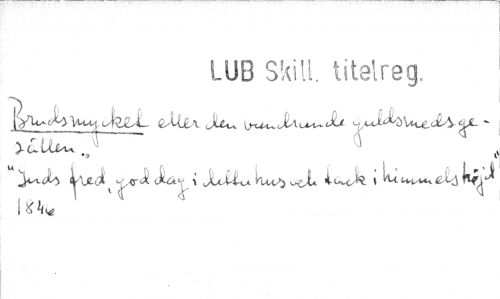 LUB Skill. titelreg.
Brudsmycket eller den vandrande guldsmedsge-
sällen.
"Guds fred, god dag i detta hus och tack i himmelshöjd"
1846